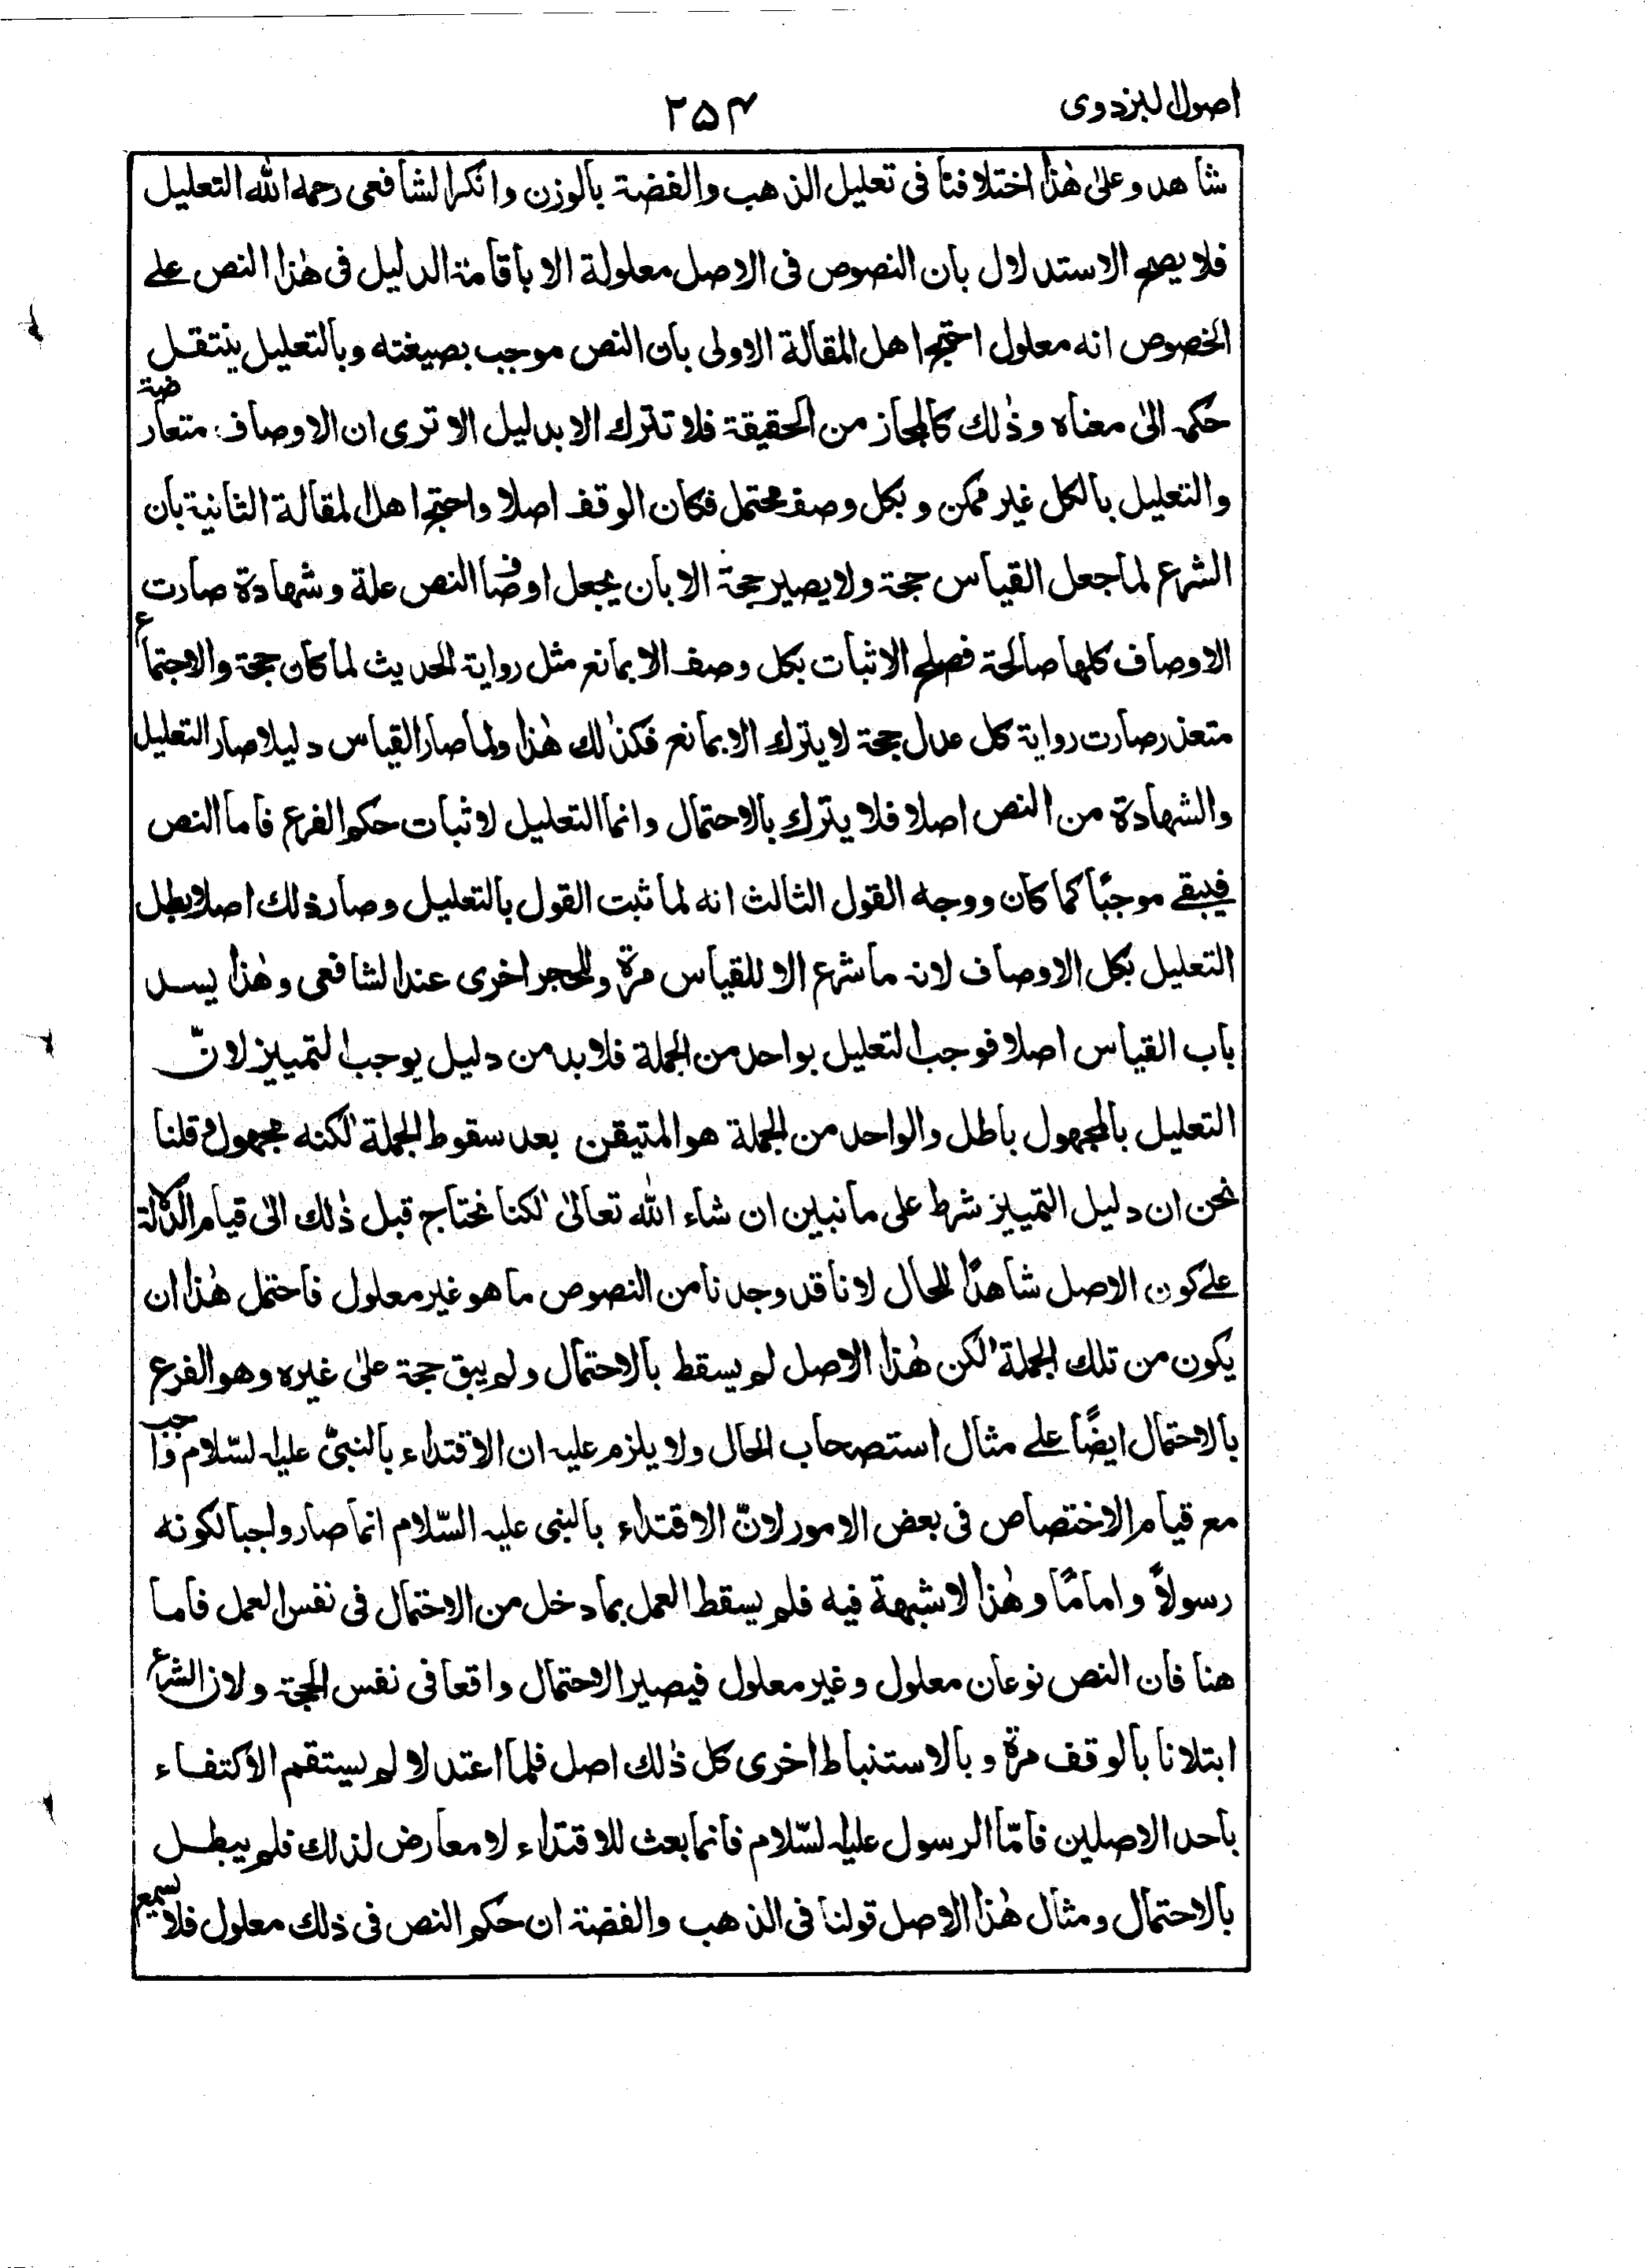 اصول البزدوی
۲۵۴
شاهد وعلیٰ هٰذا اختلافنا فی تعلیل الذهب والفضة بالوزن وانکر الشافعی رحمه الله التعلیل
فلا یصح الاستدلال بان النصوص فی الاصل معلولة الا باقامة الدلیل فی هٰذا النص علے
الخصوص انه معلول احتج اهل المقالة الاولی بان النص موجب بصیغته وبالتعلیل ینتقل
حکمه الیٰ معناه وذٰلك کالمجاز من الحقیقة فلا تترك الا بدلیل الا تری ان الاوصاف متعارضة
والتعلیل بالکل غیر ممکن وبکل وصف محتمل فکان الوقف اصلا واحتج اهل المقالة الثانیة بان
الشرع لما جعل القیاس حجة ولا یصیر حجة الا بان یجعل اوصاف النص علة وشهادة صارت
الاوصاف کلها صالحة فصلح الاثبات بکل وصف الا بمانع مثل روایة الحدیث لما کان حجة والاجتماع
متعذر صارت روایة کل عدل حجة لا یترك الا بمانع فکذٰلك هٰذا ولما صار القیاس دلیلا صار التعلیل
والشهادة من النص اصلا فلا یترك بالاحتمال وانما التعلیل لاثبات حکم الفرع فاما النص
فیبقے موجبًا کما کان ووجه القول الثالث انه لما ثبت القول بالتعلیل وصار ذلك اصلا بطل
التعلیل بکل الاوصاف لانه ما شرع الا للقیاس مرة وللحجر اخری عند الشافعی وهٰذا یسد
باب القیاس اصلا فوجب التعلیل بواحد من الجملة فلا بد من دلیل یوجب التمییز لانّ
التعلیل بالمجهول باطل والواحد من الجملة هو المتیقن بعد سقوط الجملة لٰکنه مجهول وقلنا
نحن ان دلیل التمییز شرط علی ما نبین ان شاء الله تعالیٰ لٰکنا نحتاج قبل ذٰلك الیٰ قیام الدلالة
علے کون الاصل شاهدًا للحال لانا قد وجدنا من النصوص ما هو غیر معلول فاحتمل هٰذا ان
یکون من تلك الجملة لٰکن هٰذا الاصل لم یسقط بالاحتمال ولم یبق حجة علیٰ غیره وهو الفرع
بالاحتمال ایضًا علے مثال استصحاب الحال ولا یلزم علیه ان الاقتداء بالنبیّ علیه السّلام واجب
مع قیام الاختصاص فی بعض الامور لانّ الاقتداء بالنبی علیه السّلام انما صار واجبا لکونه
رسولاً وامامًا وهٰذا لا شبهة فیه فلم یسقط العمل بما دخل من الاحتمال فی نفس العمل فاما
هنا فان النص نوعان معلول وغیر معلول فیصیر الاحتمال واقعا فی نفس الحجة ولان الشرع
ابتلانا بالوقف مرة وبالاستنباط اخری کل ذٰلك اصل فلما اعتدلا لم یستقم الاکتفاء
باحد الاصلین فامّا الرسول علیه السّلام فانما بعث للاقتداء لا معارض لذلك فلم یبطل
بالاحتمال ومثال هٰذا الاصل قولنا فی الذهب والفضة ان حکم النص فی ذلك معلول فلا یسمع